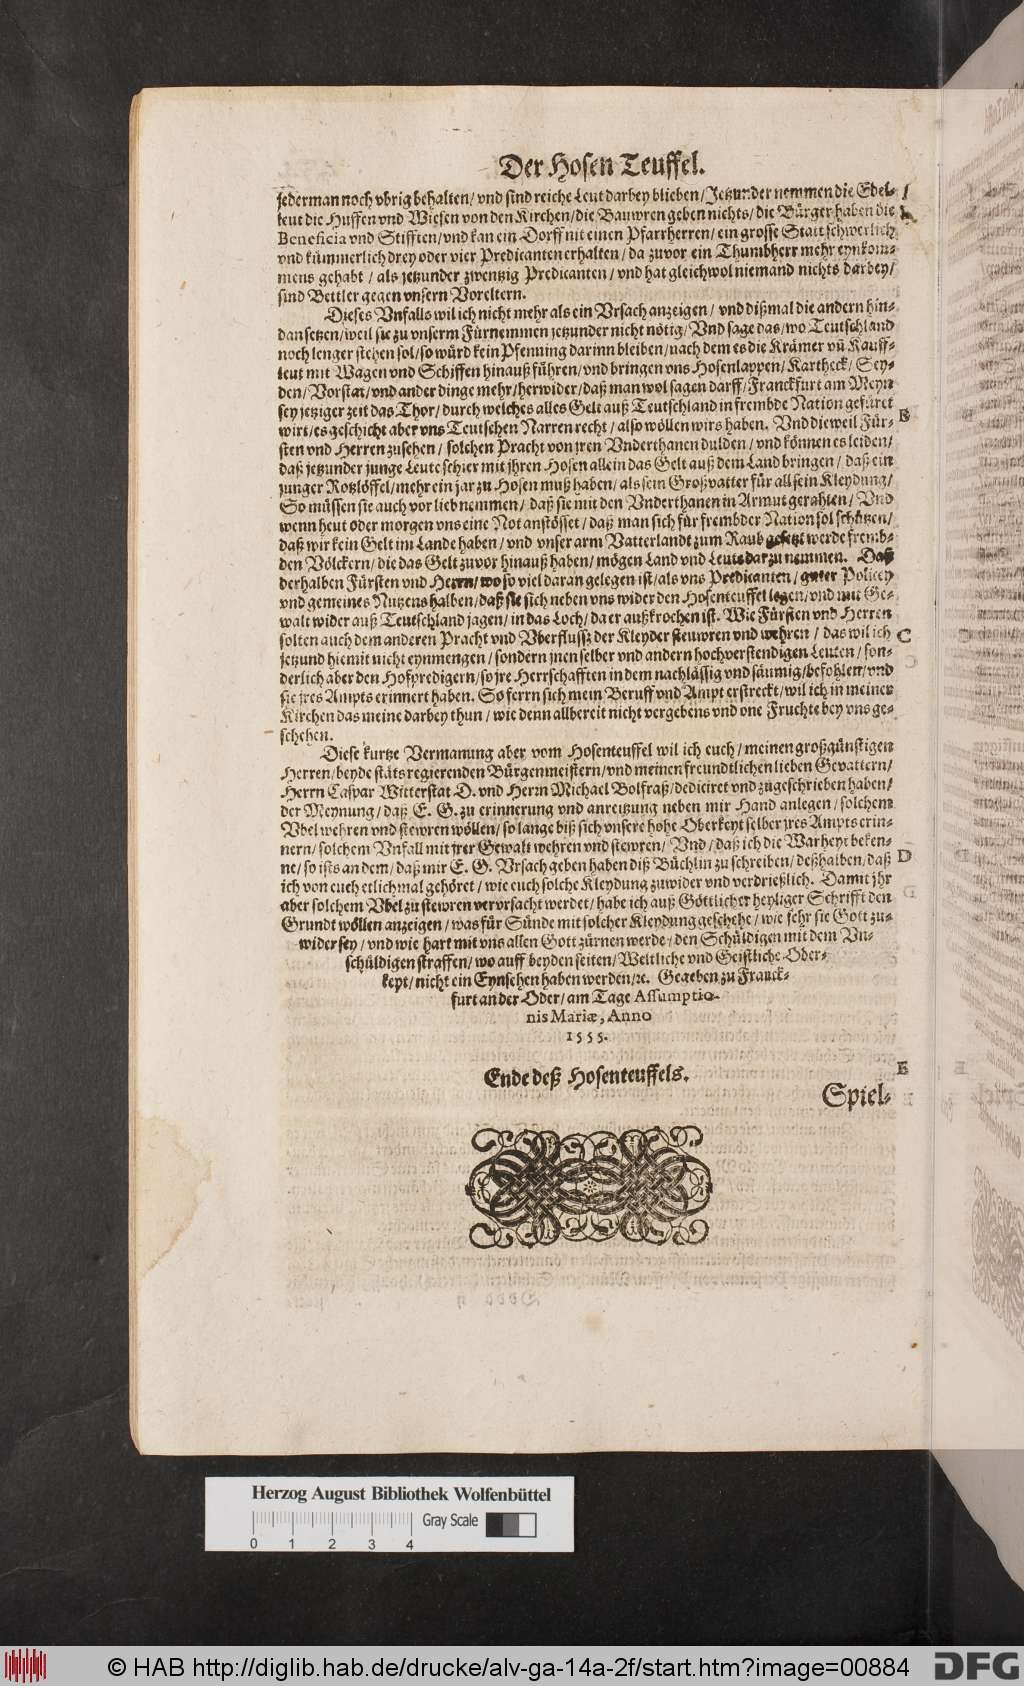 Der Hosen Teuffel.
jederman noch vbrig behalten/ vnd sind reiche Leut darbey blieben/ Jetzunder nemmen die Edel-
leut die Huffen vnd Wiesen von den Kirchen/ die Bauwren geben nichts/ die Bürger haben die
Beneficia vnd Stifften/ vnd kan ein Dorff nit einen Pfarrherren/ ein grosse Statt schwerlich
vnd kümmerlich drey oder vier Predicanten erhalten/ da zuvor ein Thumbherr mehr eynkom-
mens gehabt/ als jetzunder zwentzig Predicanten/ vnd hat gleichwol niemand nichts darbey/
sind Bettler gegen vnsern Voreltern.
Dieses Vnfalls wil ich nicht mehr als ein Vrsach anzeigen/ vnd dißmal die andern hin-
dan setzen/ weil sie zu vnserm Fürnemmen jetzunder nicht nötig/ Vnd sage das/ wo Teutschland
noch lenger stehen sol/ so würd kein Pfenning darinn bleiben/ nach dem es die Krämer vñ Kauff-
leut mit Wagen vnd Schiffen hinauß führen/ vnd bringen vns Hosenlappen/ Kartheck/ Sey-
den/ Vorstat/ vnd ander dinge mehr/ herwider/ daß man wol sagen darff/ Franckfurt am Meyn
sey jetziger zeit das Thor/ durch welches alles Gelt auß Teutschland in frembde Nation gefüret
wirt/ es geschicht aber vns Teutschen Narren recht/ also wöllen wirs haben. Vnd dieweil Für- B
sten vnd Herren zusehen/ solchen Pracht von jren Vnderthanen dulden/ vnd können es leiden/
daß jetzunder junge Leute schier mit jhren Hosen allein das Gelt auß dem Land bringen/ daß ein
junger Rotzlöffel/ mehr ein jar zu Hosen muß haben/ als sein Großvatter für all sein Kleydung/
So müssen sie auch vor lieb nemmen/ daß sie mit den Vnderthanen in Armut gerahten/ Vnd
wenn heut oder morgen vns eine Not anstösset/ daß man sich für frembder Nation sol schützen/
daß wir kein Gelt im Lande haben/ vnd vnser arm Vatterlandt zum Raub gesetzt werde fremb-
den Völckern/ die das Gelt zuvor hinauß haben/ mögen Land vnd Leute darzu nemmen. Daß
derhalben Fürsten vnd Herrn/ wo so viel daran gelegen ist/ als vns Predicanten/ guter Policey
vnd gemeines Nutzens halben/ daß sie sich neben vns wider den Hosenteuffel legen/ vnd mit Ge-
walt wider auß Teutschland jagen/ in das Loch/ da er außkrochen ist. Wie Fürsten vnd Herren
solten auch dem anderen Pracht vnd Vberflussz der Kleyder steuwren vnd wehren/ das wil ich C
jetzund hiemit nicht eynmengen/ sondern jnen selber vnd andern hochverstendigen Leuten/ son-
derlich aber den Hofpredigern/ so jre Herrschafften in dem nachlässig vnd säumig/ befohlen/ vnd
sie jres Ampts erinnert haben. So ferrn sich mein Beruff vnd Ampt erstreckt/ wil ich in meiner
Kirchen das meine darbey thun/ wie denn allbereit nicht vergebens vnd one Fruchte bey vns ge-
schehen.
Diese kurtze Vermanung aber vom Hosenteuffel wil ich euch/ meinen großgünstigen
Herren/ beyde stäts regierenden Bürgenmeistern/ vnd meinen freundtlichen lieben Gevattern/
Herrn Caspar Witterstat D. vnd Herrn Michael Bolfraß/ dediciret vnd zugeschrieben haben/
der Meynung/ daß E. G. zu erinnerung vnd anreitzung neben mir Hand anlegen/ solchem
Vbel wehren vnd stewren wöllen/ so lange biß sich vnsere hohe Oberkeyt selber jres Ampts erin-
nern/ solchem Vnfall mit jrer Gewalt wehren vnd stewren/ Vnd/ daß ich die Warheyt beken-
ne/ so ists an dem/ daß mir E. G. Vrsach geben haben diß Büchlin zu schreiben/ deßhalben/ daß D
ich von euch etlichmal gehöret/ wie euch solche Kleydung zuwider vnd verdrießlich. Damit jhr
aber solchem Vbel zu stewren verursacht werdet/ habe ich auß Göttlicher heyliger Schrifft den
Grundt wöllen anzeigen/ was für Sünde mit solcher Kleydung geschehe/ wie sehr sie Gott zu-
wider sey/ vnd wie hart mit vns allen Gott zürnen werde/ den Schüldigen mit dem Vn-
schüldigen straffen/ wo auff beyden seiten/ Weltliche vnd Geistliche Ober-
keyt/ nicht ein Eynsehen haben werden/ ꝛc. Gegeben zu Franck-
furt an der Oder/ am Tage Assumptio-
nis Mariæ, Anno
1555.
Ende deß Hosenteuffels. E
Spiel-
Herzog August Bibliothek Wolfenbüttel
Gray Scale
0 1 2 3 4
© HAB http://diglib.hab.de/drucke/alv-ga-14a-2f/start.htm?image=00884
DFG